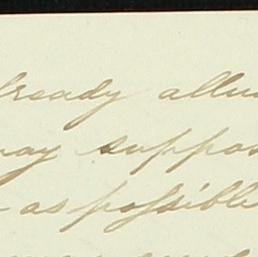 lready allu
ay suppos
as possible